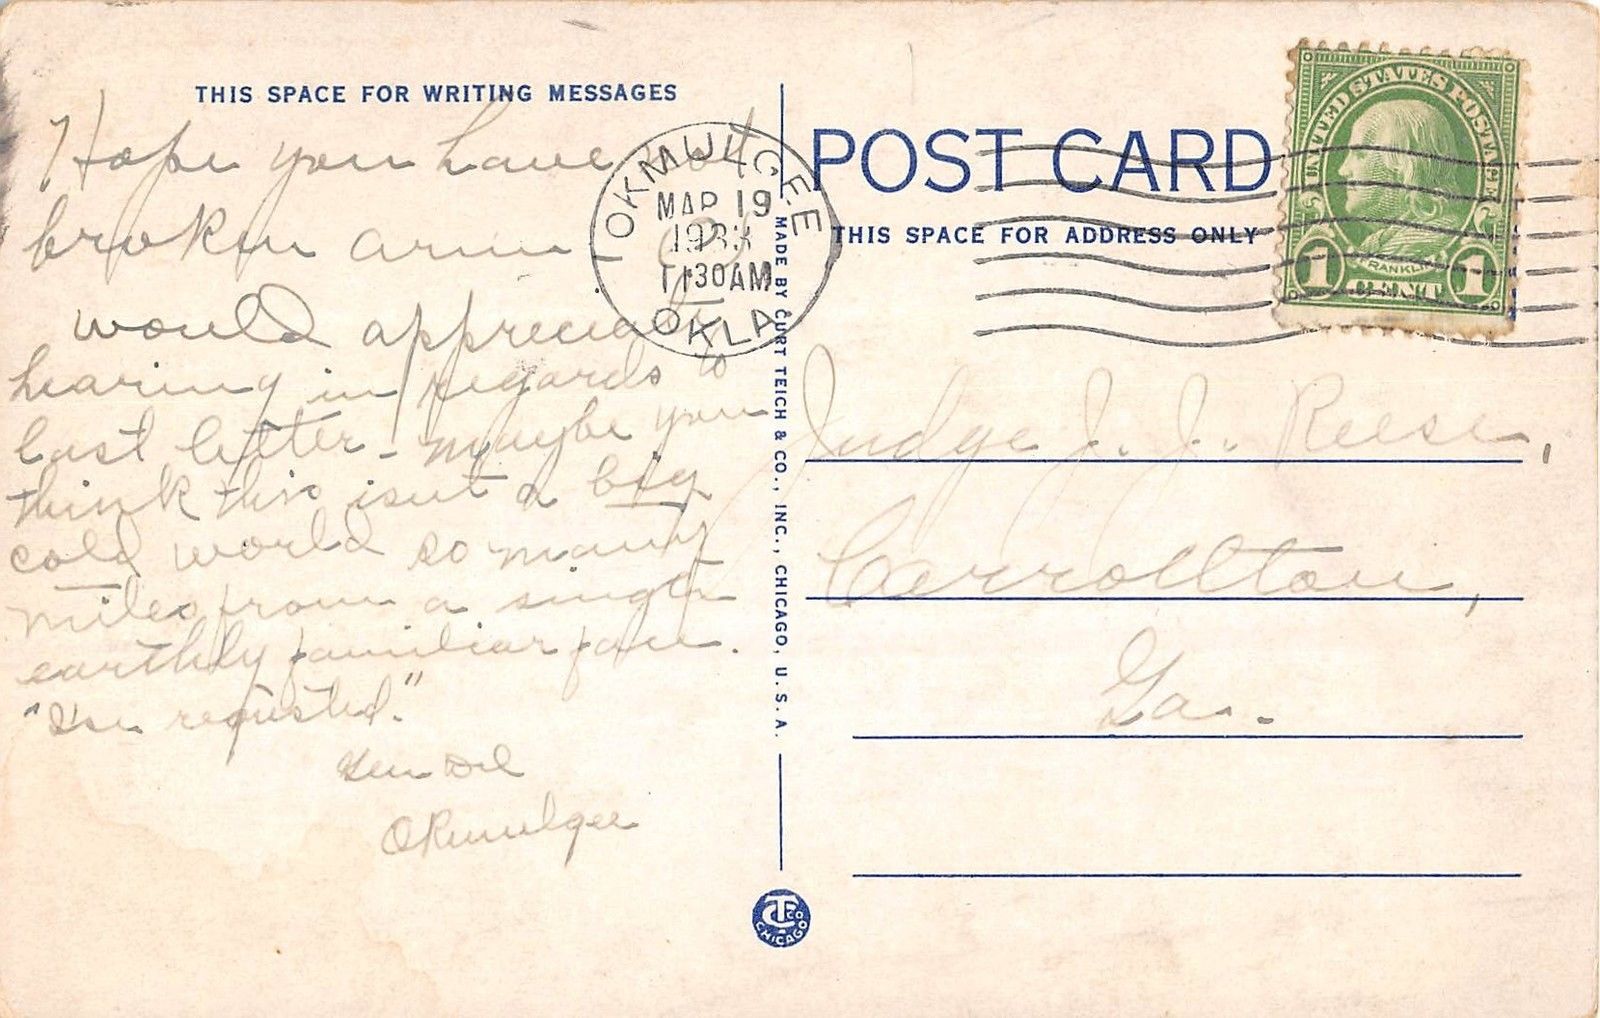 THIS SPACE FOR WRITING MESSAGES
Hope you have not
broken arm
would appreciate
hearing in regards to
last letter - maybe you
think this isnt a big
cold world so many
miles from a single
earthly familiar face.
requested."
Okmulgee
OKMULGEE
MAR 19
1933
1130AM
OKLA
MADE BY CURT TEICH & CO., INC., CHICAGO, U.S.A.
C T & CO
CHICAGO
POST CARD
THIS SPACE FOR ADDRESS ONLY
UNITED STATES POSTAGE
FRANKLIN
1 CENT 1
Judge J. J. Reese,
Carrollton,
Ga.